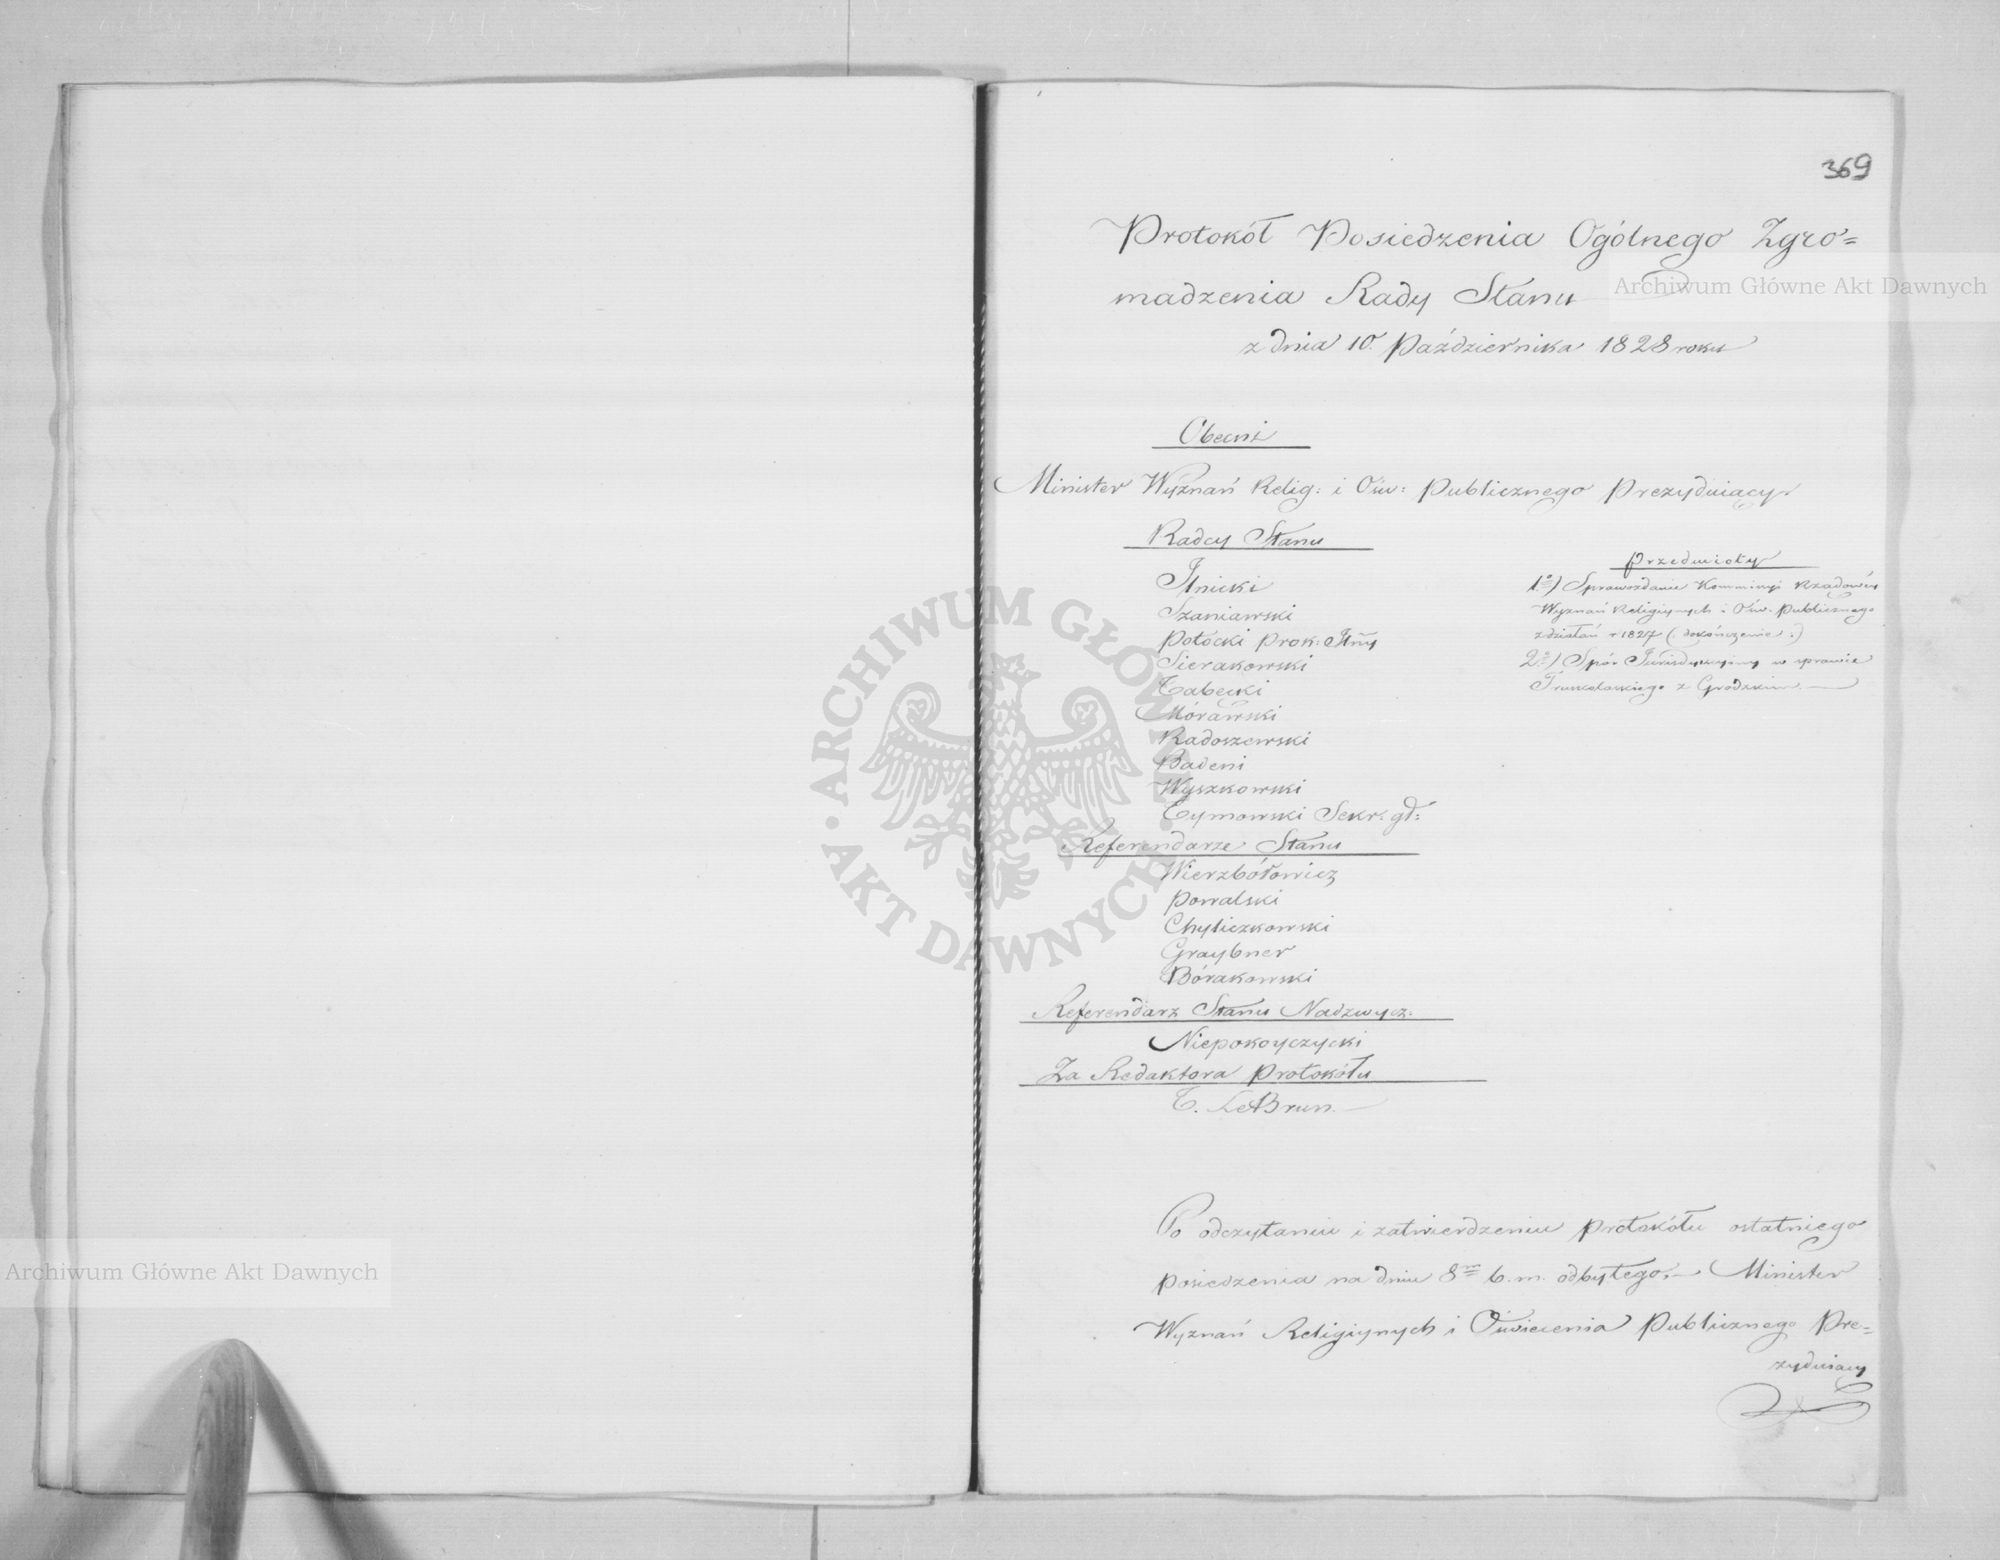 369
Protokół Posiedzenia Ogólnego Zgro=
madzenia Rady Stanu
z dnia 10. Października 1828 roku
Obecni
Minister Wyznań Relig: i Ośw: Publicznego Prezyduiący.
Radcy Stanu
Jłnicki
Szaniawski
Potocki Prok:
Sierakowski
Tabęcki
Mórawski
Radoszewski
Badeni
Wyszkowski
Tymowski Sekr: gł:
Referendarze Stanu
Wierzbółowicz
Powalski
Chyliczkowski
Graybner
Bórakowski
Referendarz Stanu Nadzwycz:
Niepokoyczycki
Za Redaktora Protokółu
T. LeBrun.
Przedmioty
1º) Sprawozdanie Kommissyi Rządowéy
Wyznań Religiynych i Ośw. Publicznego
z działań r 1827 (: dokończenie :)
2º) Spór Jurisdykcyiny w sprawie
z Grodzkim.
Po odczytaniu i zatwierdzeniu Protokółu ostatniego
posiedzenia na dniu 8m b. m. odbytego, — Minister
Wyznań Religiynych i Oświecenia Publicznego Pre=
zyduiący
Archiwum Główne Akt Dawnych
Archiwum Główne Akt Dawnych
ARCHIWUM GŁÓWNE · AKT DAWNYCH ·